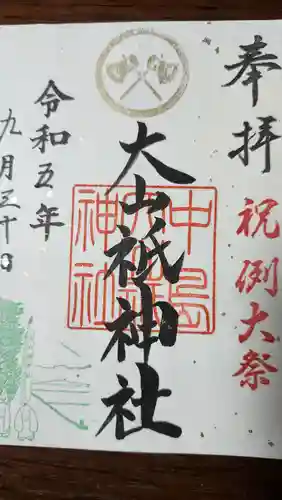 奉拝
祝例大祭
大山祇神社
中島
大山祇
神社
令和五年
九月三十日